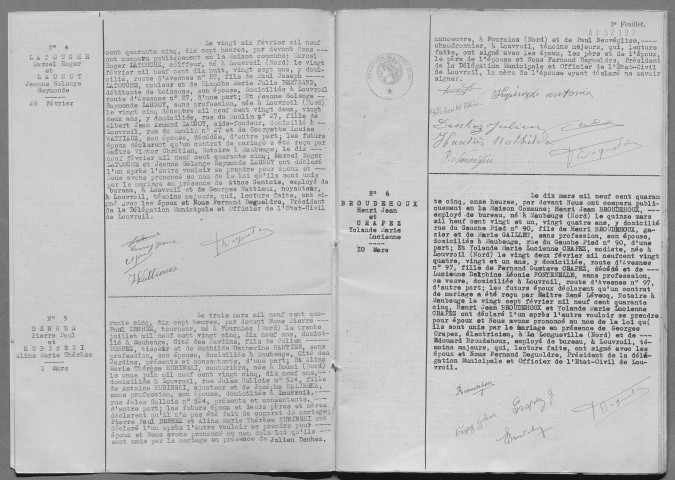 N° 4
LATOUCHE
Marcel Roger
et
LAUNOY
Jeanne Solange
Raymonde
26 Février
Le vingt six février mil neuf
cent quarante cinq, dix sept heures, par devant Nous
ont comparu publiquement en la Maison commune: Marcel
Roger LATOUCHE, coiffeur, né à Louvroil (Nord) le vingt
février mil neuf cent dix huit, vingt sept ans, y domi-
cilié, route d'Avesnes n° 87, fils de Paul Joseph
LATOUCHE, rouleur et de Blanche Marie Julie
débitante de boissons, son épouse, domiciliés à Louvroil
route d'Avesnes n° 87, d'une part; Et Jeanne Solange
Raymonde LAUNOY, sans profession, née à Louvroil (Nord)
le vingt cinq décembre mil neuf cent vingt deux, vingt
deux ans, y domiciliée, rue du Moulin n° 27, fille de
Albert Jean Armand LAUNOY, aide-fondeur, domicilié à
Louvroil, rue du Moulin n° 27 et de Georgette Louise
WATTIAUX, son épouse, décédée, d'autre part; les futurs
époux déclarent qu'un contrat de mariage a été reçu par
Maître Victor Chrétien, Notaire à Maubeuge; le dix
février mil neuf cent quarante cinq; Marcel Roger
LATOUCHE et Jeanne Solange Raymonde LAUNOY ont déclaré
l'un après l'autre vouloir se prendre pour époux et
Nous avons prononcé au nom de la Loi qu'ils sont unis
par le mariage en présence de Albans Gantois, employé
de bureau, à Louvroil et de Georges Wattiaux, noyauteur,
à Louvroil, témoins majeurs, qui, lecture faite, ont si-
gné avec les époux et Nous Fernand Degueldre, Président
de la Délégation Municipale et Officier de l'Etat-Civil
de Louvroil.
N° 5
DENHEZ
Pierre Paul
et
KUBINSKI
Alina Marie Thérèse
3 Mars
Le trois mars mil neuf cent qua-
rante cinq, dix sept heures, par devant Nous Pierre
Paul DENHEZ, tourneur, né à Fourmies (Nord) le trente
juillet mil neuf cent vingt cinq, dix neuf ans, domici-
lié à Maubeuge, Cité des Jardins, fils de Julien
DENHEZ, tisseur et de Mathilde Catherine HAUTIER, sans
profession, son épouse, domiciliés à Maubeuge, Cité des
Jardins, présents et consentants, d'une part; Et Alina
Marie Thérèse KUBINSKI, couturière, née à Douai (Nord)
le onze juin mil neuf cent vingt cinq, dix neuf ans,
domiciliée à Louvroil, rue Jules Gallois n° 524, fille
de Antoine KUBINSKI, ajusteur et de Josepha
sans profession, son épouse, domiciliés à Louvroil,
rue Jules Gallois n° 524, présents et consentants,
d'autre part; les futurs époux et leurs pères et mères
déclarent qu'il n'a pas été fait de contrat de mariage;
Pierre Paul DENHEZ et Alina Marie Thérèse KUBINSKI ont
déclaré l'un après l'autre vouloir se prendre pour
époux et Nous avons prononcé au nom de la loi qu'ils
sont unis par le mariage en présence de Julien Denhez,
3e Feuillet.
manoeuvre, à Fourmies (Nord) et de Paul Neuvéglise,
chaudronnier, à Louvroil, témoins majeurs, qui, lecture
faite, ont signé avec les époux, les père et mère de l'époux,
le père de l'épouse et Nous Fernand Degueldre, Président
de la Délégation Municipale et Officier de l'Etat-Civil
de Louvroil, la mère de l'épouse ayant déclaré ne savoir
signer.
Denhez Julien
Hautier Mathilde
N° 6
BROUDEHOUX
Henri Jean
et
CRAPEZ
Yolande Marie
Lucienne
10 Mars
Le dix mars mil neuf cent quaran
te cinq, onze heures, par devant Nous ont comparu publi-
quement en la Maison Commune: Henri Jean BROUDEHOUX,
employé de bureau, né à Maubeuge (Nord) le quinze mars
mil neuf cent vingt et un, vingt quatre ans, y domicilié
rue du Gauche Pied n° 90, fils de Henri BROUDEHOUX, ga-
zier et de Marie GAILLET, sans profession, son épouse,
domiciliés à Maubeuge, rue du Gauche Pied n° 90, d'une
part; Et Yolande Marie Lucienne CRAPEZ, modiste, née à
Louvroil (Nord) le vingt deux février mil neufcent vingt
quatre, vingt et un ans, y domiciliée, route d'Avesnes
n° 97, fille de Fernand Gustave CRAPEZ, décédé et de
Lucienne Delphine Léonie FONTENELLE, sans profession,
sa veuve, domiciliée à Louvroil, route d'Avesnes n° 97,
d'autre part; les futurs époux déclarent qu'un contrat
de mariage a été reçu par Maître René Lévecq, Notaire à
Maubeuge le vingt sept février mil neuf cent quarante
cinq, Henri Jean BROUDEHOUX et Yolande Marie Lucienne
CRAPEZ ont déclaré l'un après l'autre vouloir se prendre
pour époux et Nous avons prononcé au nom de la loi qu'
ils sont unis par le mariage en présence de Georges
Crapez, électricien, à La Longueville (Nord) et de
Edouard Broudehoux, employé de bureau, à Louvroil, té-
moins majeurs, qui, lecture faite, ont signé avec les
époux et Nous Fernand Degueldre, Président de la délé-
gation Municipale et Officier de l'Etat-Civil de Lou-
vroil.
Crapez G